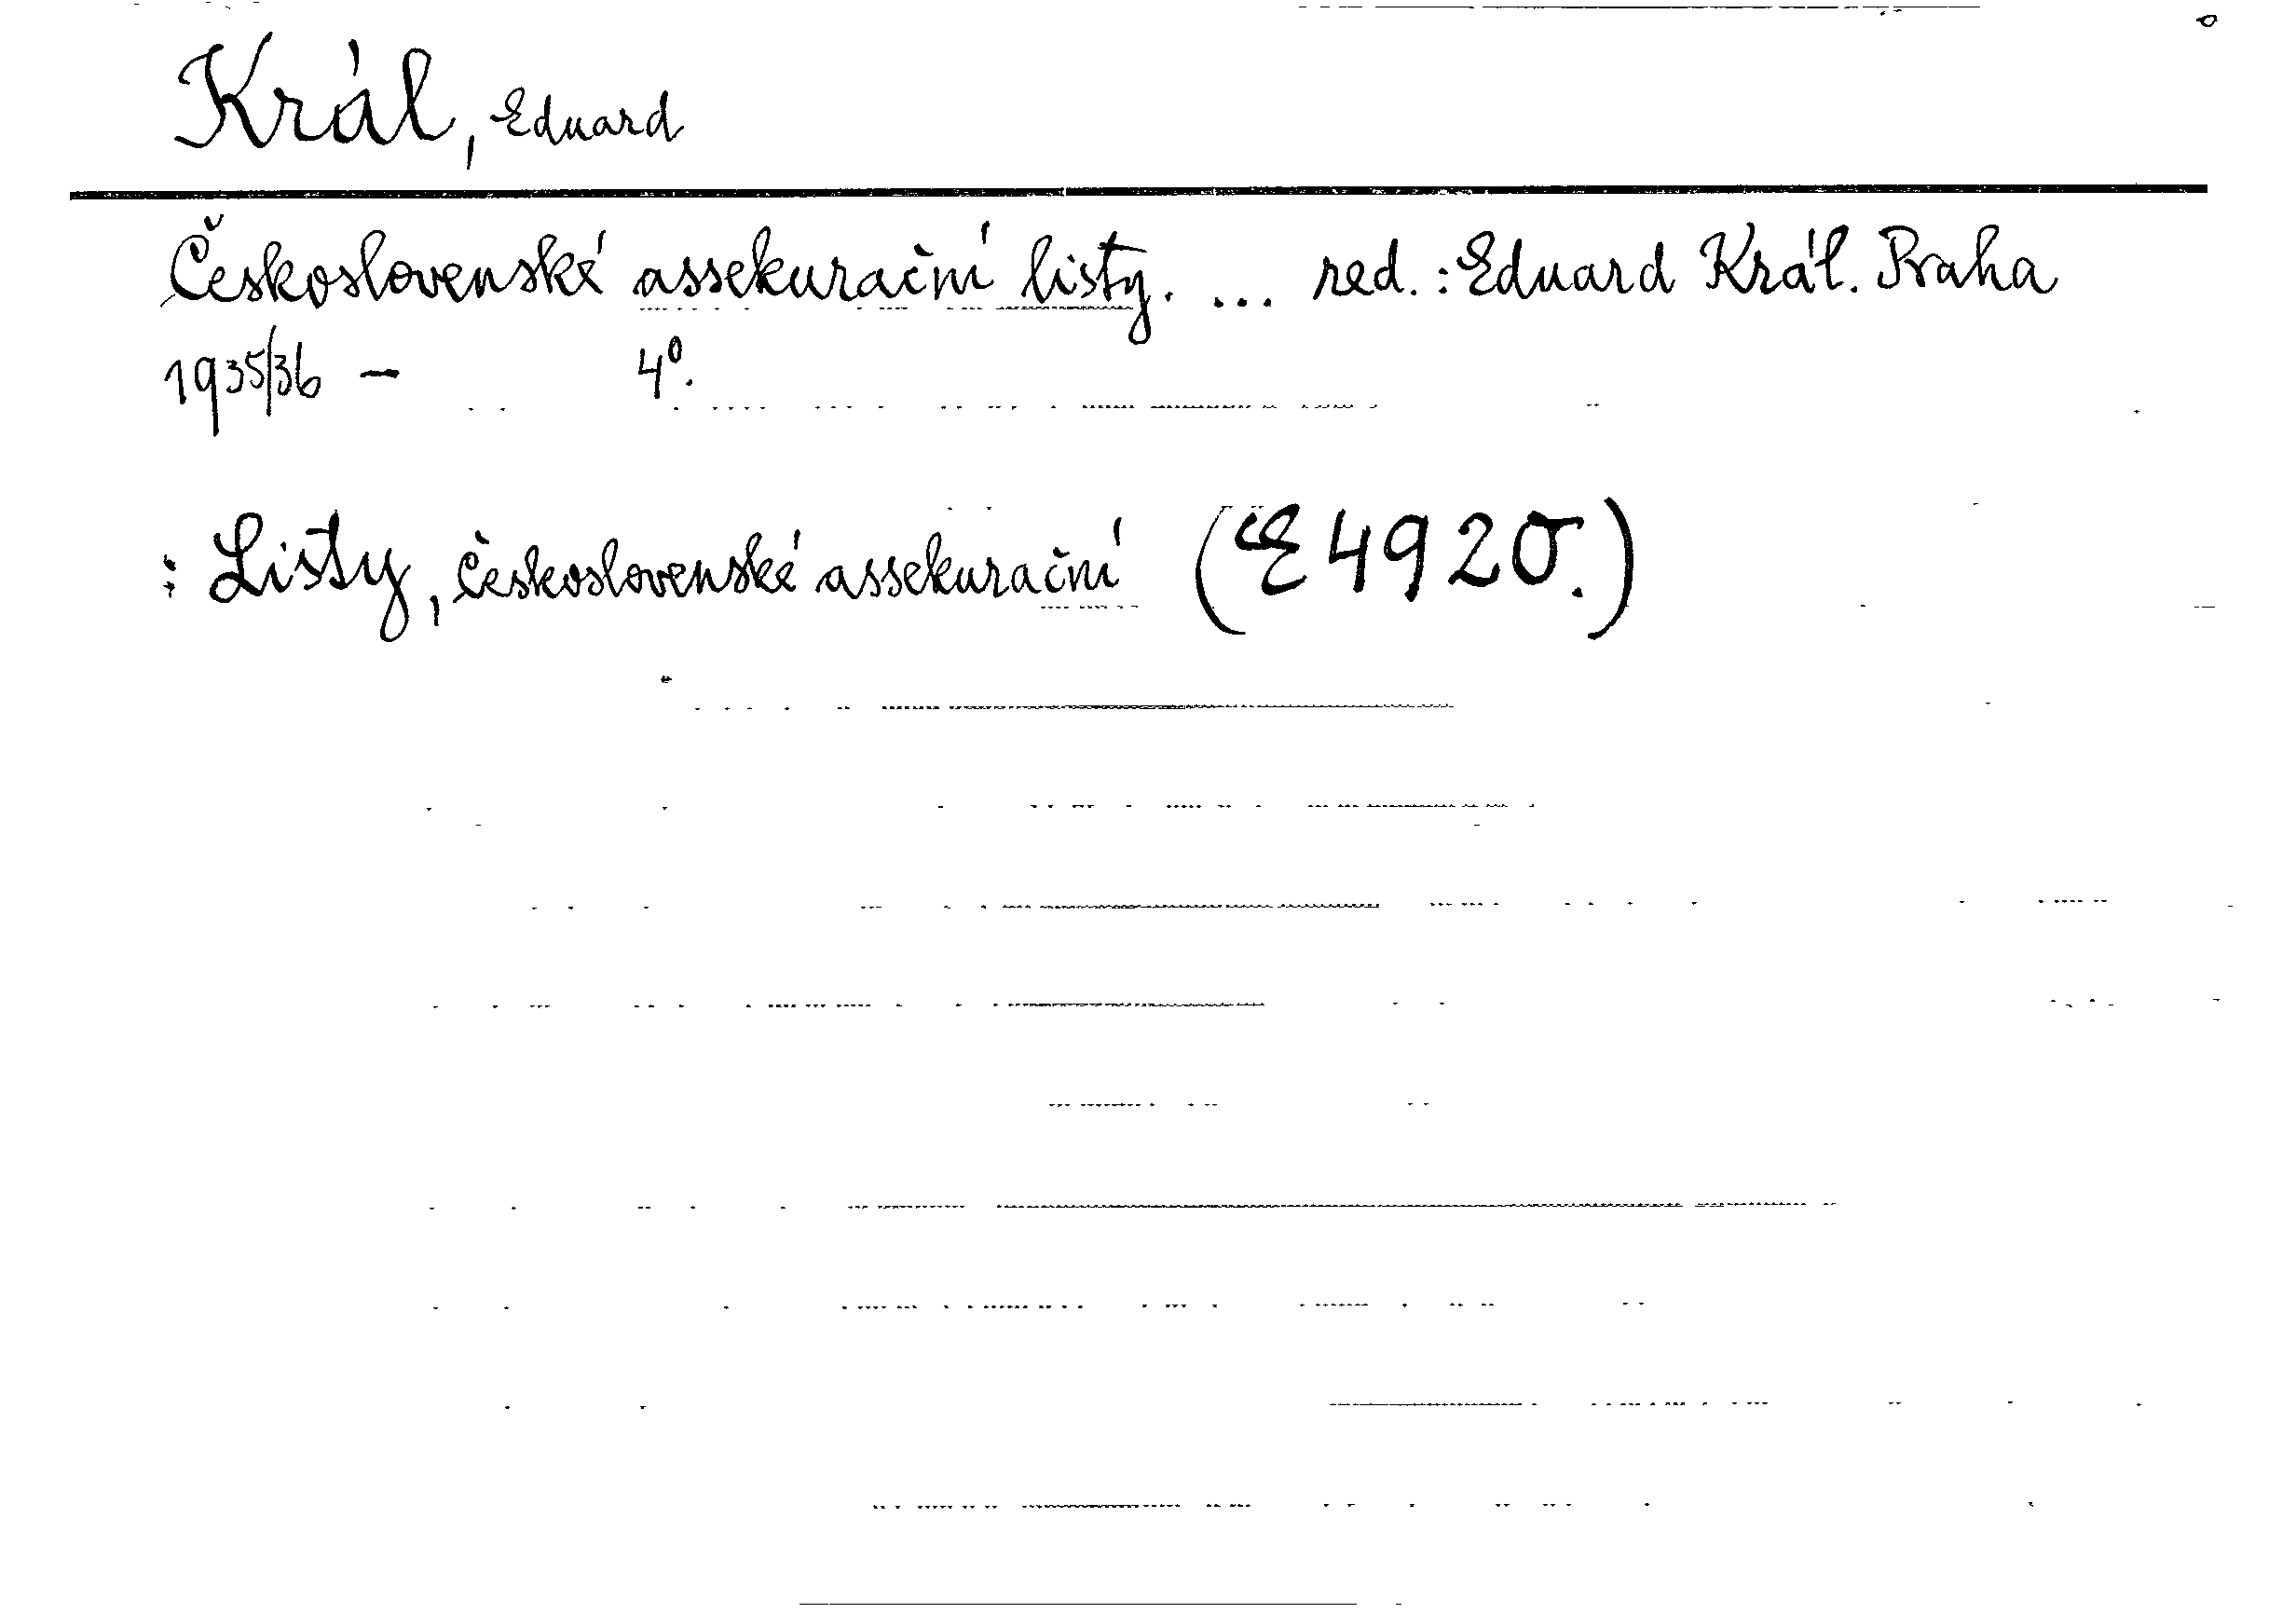 Král, Eduard
Československé assekurační listy. ... red.: Eduard Král. Praha
1935/36 – 4⁰.
: Listy, československé assekurační (E 4920.)